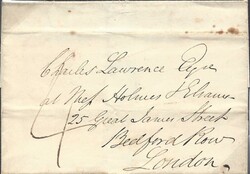 Charles Lawrence Esqre
at Messrs Holmes &
25 Great James Street
Bedford Row
London